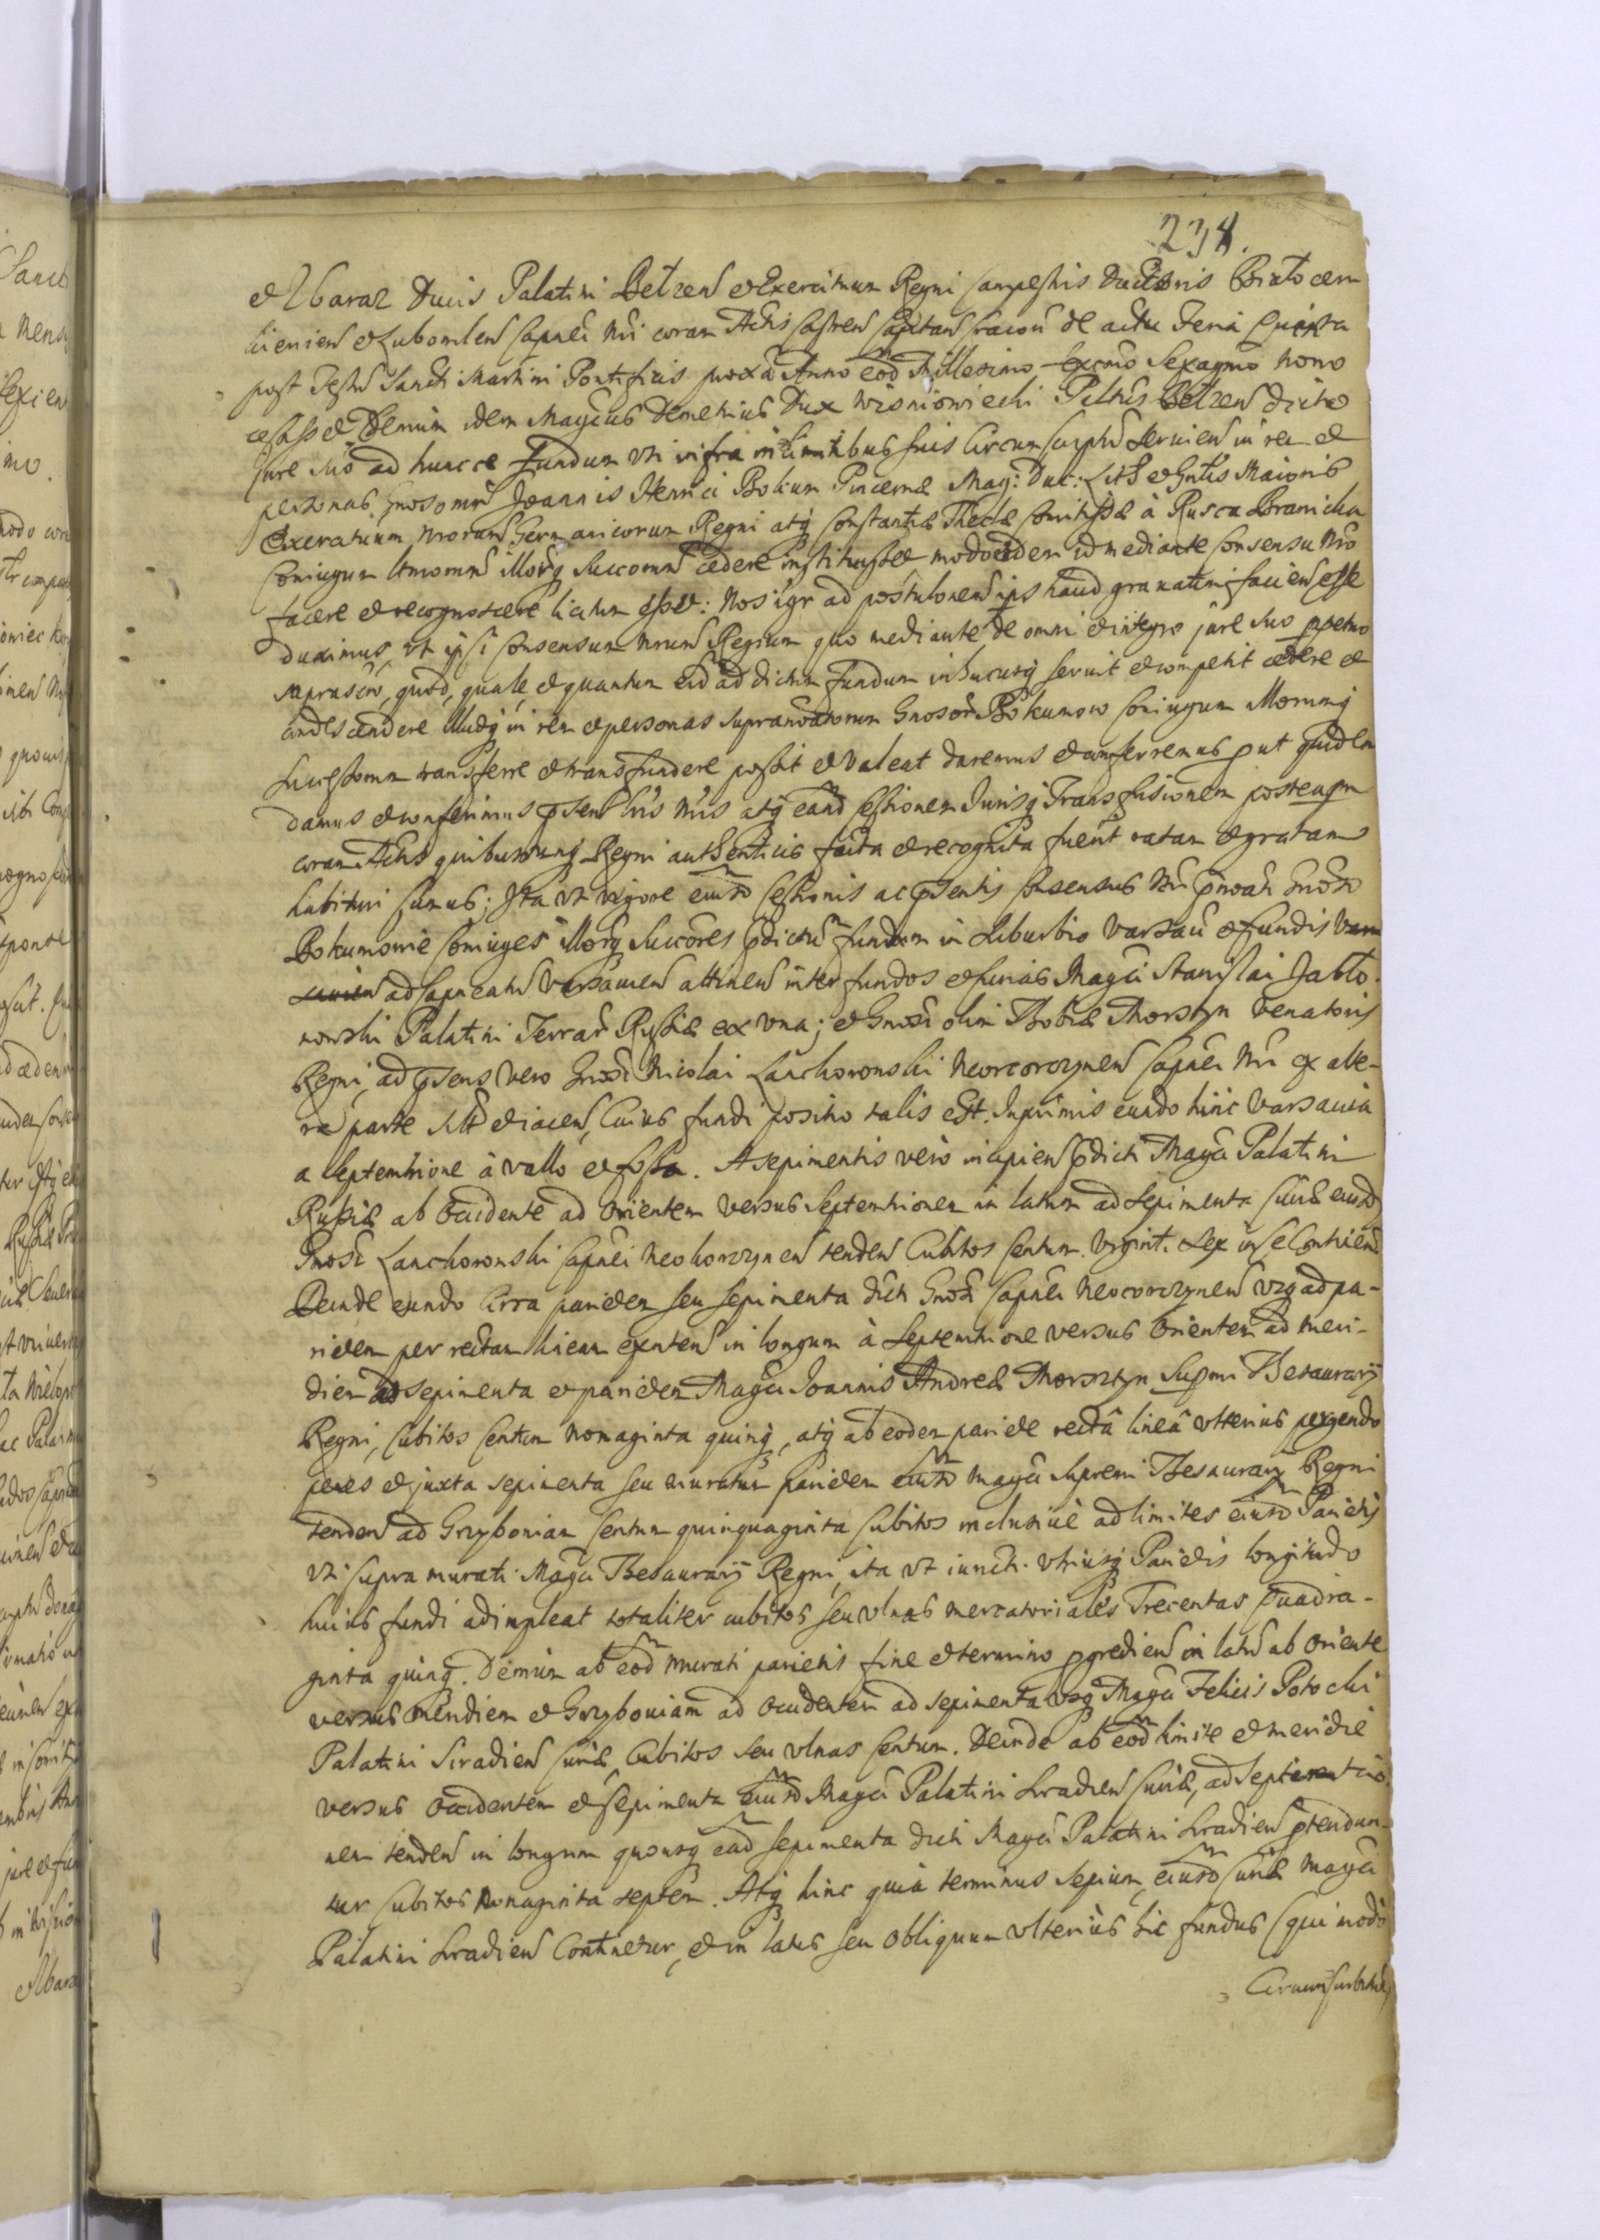 234.
et Zbaraz Ducis Palatini Belzen et Exercituum Regni campestris Ductoris Białocer
kievien et Lubomlen Capnei Nri coram Actis Castren Capitan de actu Feria Quinta
post Festu Sancti Martini Pontificis proxa Anno eod Millesimo Sexcmo Sexagmo nono
cessisset Demum idem Magcus Demetrius Dux Wisniowiecki Paltnus Belzen dicto
jure suo ad huncce fundum vti infra in limitibus suis Circumscriptu servien in rem et
personas Gnosorum Joannis Henrici Bokum Pincernae Mag: Duc: Lith et Gnlis Maioris
Exercituum nrorum Germanicorum Regni atq Constantiae Theclae Comitissae à Rusca Branicka
Coniugum illorq Succorum cedere instituisset, modo eidem id mediante consensu Nro
facere et recognoscere licitum esset: Nos igr ad postulonem ips haud gravatim facien esse
duximus, vt ipsi consensum nrum Regium quo mediante de omni et integro jure suo ppetuo
suprascto, quod, quale, et quantum eid ad dictum fundum in hucusq servit et competit cedere et
condescendere illudq in rem et personas supranoatorum Gnosor Bokumow Coniugum illorumq
Successorum transferre et transfundere possit et valeat daremus et conferremus put quidem
damus et conferimus psen lris nris atq eand cessionem Jurisq Transfusionem posteaqm
coram Actis quibusvunq Regni authenticis facta et recognita fuerit ratam et gratam
habituri sumus; Ita vt vigore eiusd cessionis ac psentis consensus Nri pnoati Gnosi
Bokumowie Coniuges illorq Succores pdictu fundum in Suburbio Varsavi et fundis Varsa
ad Capneatu Varsavien attinen inter fundos et curias Magci Stanislai Jabło-
nowski Palatini Terrar Russiae ex vna; et Gnosi olim Tobiae Morsztyn Venatoris
Regni, ad psens vero Gnosi Nicolai Lanckoronski Neocorczynen Capnei Nri ex alte-
ra parte situ et iacen, Cuius fundi positio talis est. Inprimis eundo hinc Varsavia
a Septemtrione à vallo et fossa. A sepimentis vero incipien pdicti Magci Palatini
Russiae ab Occidente ad Orientem versus Septemtrionem in latum ad sepimenta curiae eiusd
Gnosi Lanckoronski Capnei Neokorczynen tenden Cubitos Centum Viginti Sex in se Continen
Deinde eundo Circa parietem seu sepimenta dicti Gnosi Capnei Neocorczynen vsq ad pa-
rietem per rectam lineam exnten in longum à Septemtrione versus Orientem ad meri-
diem ad sepimenta et parietem Magci Joannis Andreae Morsztyn Supmi Thesaurarij
Regni, Cubitos Centum Nonaginta quinq, atq ab eodem pariete rectâ lineâ vlterius pergendo
penes et juxta sepimenta seu muratum parietem eiusd Magci Supremi Thesaurarij Regni
tenden ad Grzyboviam Centum quinquaginta Cubitos inclusivè ad limites eiusd Parietis
vti supra murati Magci Thesaurarij Regni, ita vt iuncti vtriusq Parietis longitudo
huius fundi adimpleat totaliter cubitos seu vlnas mercatoriales Trecentas Quadra-
ginta quinq. Demum ab eod murati parietis fine et termino pgredien in latu ab Oriente
versus meridiem et Grzyboviam ad occidentem ad sepimenta vsq Magci Felicis Potocki
Palatini Siradien curiae, Cubitos seu vlnas Centum. Deinde ab eod limite et meridie
versus Occidentem et sepimenta eiusd Magci Palatini Siradien Curiae, ad Septemtrio-
nem tenden in longum quousq ead sepimenta dicti Magci Palatini Siradien ptendun-
tur Cubitos Nonaginta septem. Atq hinc quia terminus sepium eiusd Curiae Magci
Palatini Siradien Continetur, et in latus seu obliquum vlterius hic fundus (qui modo
Circumscribitur